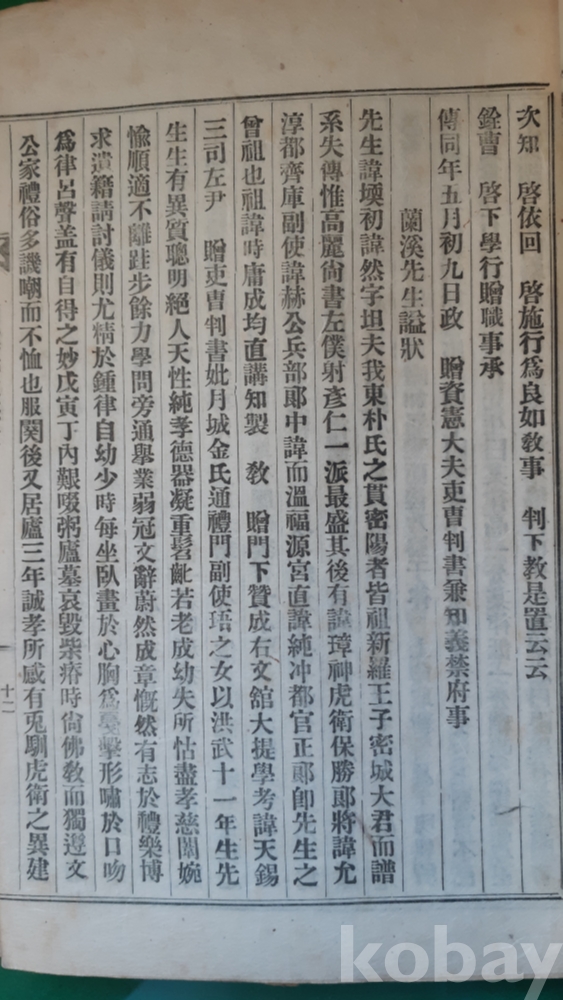 次知 啓依回 啓施行爲良如敎事 判下敎是置云云
銓曹 啓下學行贈職事承
傳同年五月初九日政 贈資憲大夫吏曹判書兼知義禁府事
蘭溪先生諡狀
先生諱堧初諱然字坦夫我東朴氏之貫密陽者皆祖新羅王子密城大君而譜
系失傳惟高麗尙書左僕射彥仁一派最盛其後有諱璋神虎衛保勝郞將諱允
淳都齊庫副使諱赫公兵部郞中諱而溫福源宮直諱純冲都官正郞卽先生之
曾祖也祖諱時庸成均直講知製 敎 贈門下贊成右文舘大提學考諱天錫
三司左尹 贈吏曹判書妣月城金氏通禮門副使珸之女以洪武十一年生先
生生有異質聰明絕人天性純孝德器凝重髫齔若老成幼失所怙盡孝慈闈婉
愉順適不離跬步餘力學問旁通擧業弱冠文辭蔚然成章慨然有志於禮樂博
求遺籍請討儀則尤精於鍾律自幼少時每坐臥畫於心胸爲戞擊形嘯於口吻
爲律呂聲盖有自得之妙戊寅丁內艱啜粥廬墓哀毀柴瘠時尙佛敎而獨遵文
公家禮俗多譏嘲而不恤也服闋後又居廬三年誠孝所感有兎馴虎衛之異建
十二
kobay